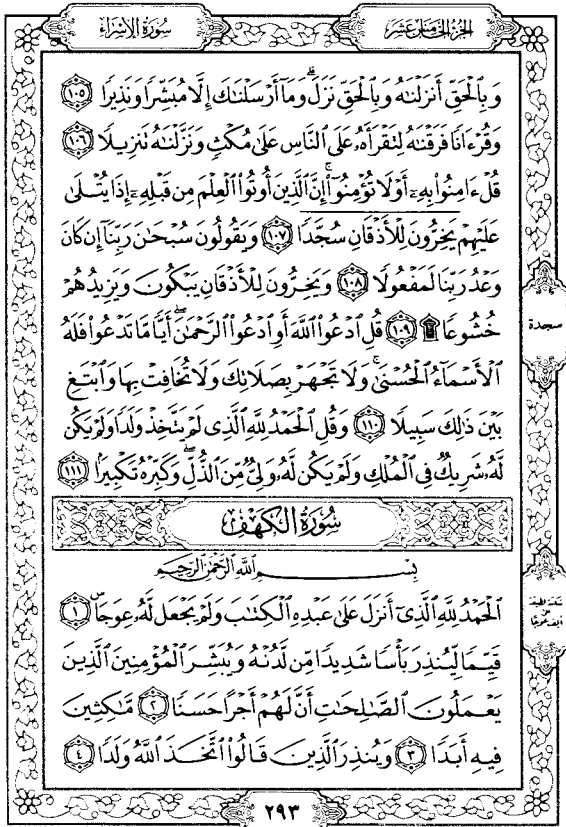 سُورَةُ الإِسْرَاءِ
الجُزْءُ الخَامِسَ عَشَرَ
وَبِالْحَقِّ أَنزَلْنَاهُ وَبِالْحَقِّ نَزَلَ ۗ وَمَآ أَرْسَلْنَاكَ إِلَّا مُبَشِّرًا وَنَذِيرًا ١٠٥
وَقُرْءَانًا فَرَقْنَاهُ لِتَقْرَأَهُۥ عَلَى النَّاسِ عَلَىٰ مُكْثٍ وَنَزَّلْنَاهُ تَنزِيلًا ١٠٦
قُلْ ءَامِنُوا۟ بِهِۦٓ أَوْ لَا تُؤْمِنُوٓا۟ ۚ إِنَّ الَّذِينَ أُوتُوا۟ الْعِلْمَ مِن قَبْلِهِۦٓ إِذَا يُتْلَىٰ
عَلَيْهِمْ يَخِرُّونَ لِلْأَذْقَانِ سُجَّدًا ١٠٧ وَيَقُولُونَ سُبْحَٰنَ رَبِّنَآ إِن كَانَ
وَعْدُ رَبِّنَا لَمَفْعُولًا ١٠٨ وَيَخِرُّونَ لِلْأَذْقَانِ يَبْكُونَ وَيَزِيدُهُمْ
خُشُوعًا ۩ ١٠٩ قُلِ ادْعُوا۟ اللَّهَ أَوِ ادْعُوا۟ الرَّحْمَٰنَ ۖ أَيًّا مَّا تَدْعُوا۟ فَلَهُ
الْأَسْمَآءُ الْحُسْنَىٰ ۚ وَلَا تَجْهَرْ بِصَلَاتِكَ وَلَا تُخَافِتْ بِهَا وَابْتَغِ
بَيْنَ ذَٰلِكَ سَبِيلًا ١١٠ وَقُلِ الْحَمْدُ لِلَّهِ الَّذِى لَمْ يَتَّخِذْ وَلَدًا وَلَمْ يَكُن
لَّهُۥ شَرِيكٌ فِى الْمُلْكِ وَلَمْ يَكُن لَّهُۥ وَلِىٌّ مِّنَ الذُّلِّ ۖ وَكَبِّرْهُ تَكْبِيرًا ١١١
سجدة
سُورَةُ الكَهْفِ
بِسْمِ اللَّهِ الرَّحْمَٰنِ الرَّحِيمِ
الْحَمْدُ لِلَّهِ الَّذِىٓ أَنزَلَ عَلَىٰ عَبْدِهِ الْكِتَٰبَ وَلَمْ يَجْعَل لَّهُۥ عِوَجَا ۜ ١
قَيِّمًا لِّيُنذِرَ بَأْسًا شَدِيدًا مِّن لَّدُنْهُ وَيُبَشِّرَ الْمُؤْمِنِينَ الَّذِينَ
يَعْمَلُونَ الصَّٰلِحَٰتِ أَنَّ لَهُمْ أَجْرًا حَسَنًا ٢ مَّٰكِثِينَ
فِيهِ أَبَدًا ٣ وَيُنذِرَ الَّذِينَ قَالُوا۟ اتَّخَذَ اللَّهُ وَلَدًا ٤
٢٩٣